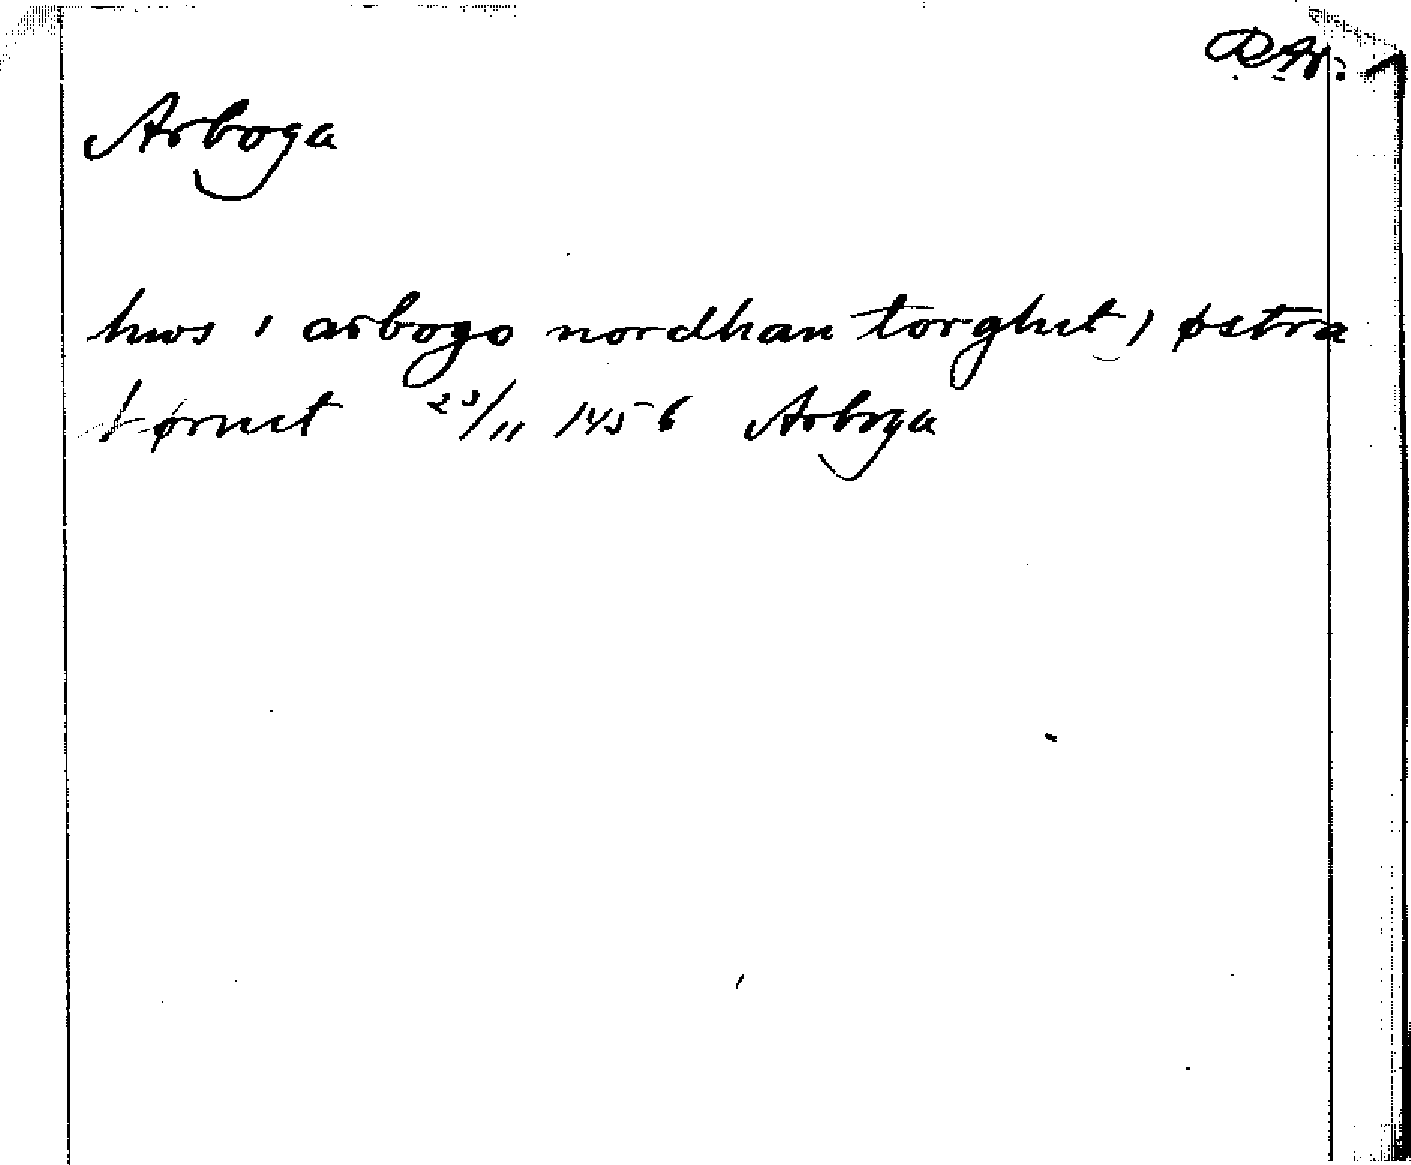 RAp.
Arboga
hws i arbogo nordhan torghet, i østra
hørnet 23/11 1456 Arboga